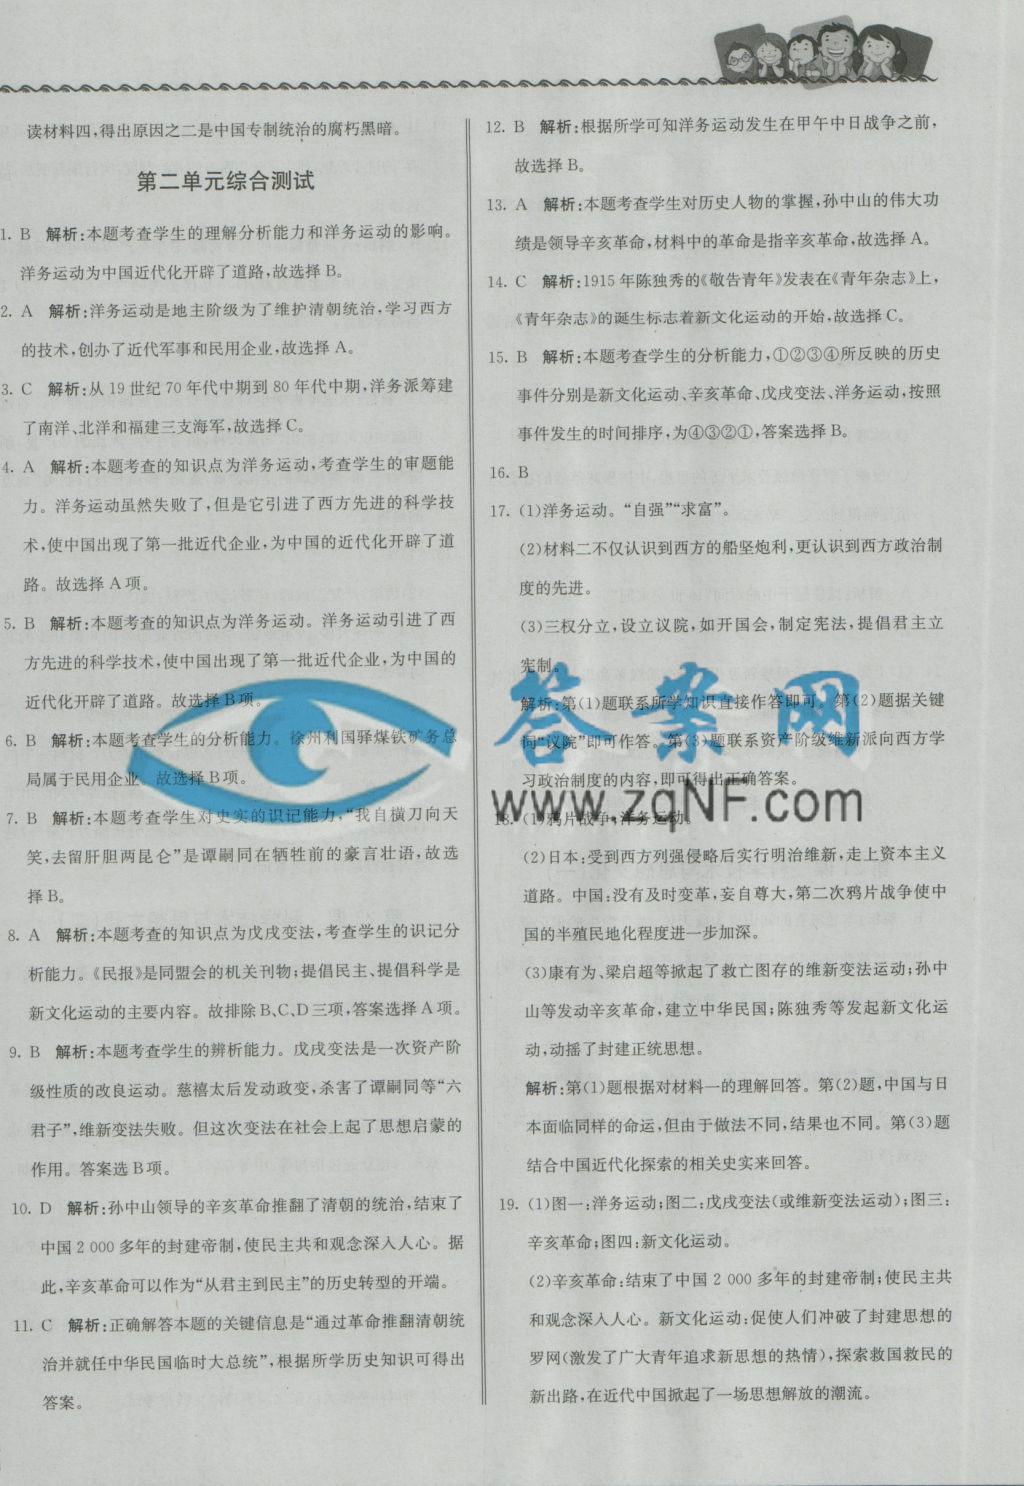 读材料四,得出原因之二是中国专制统治的腐朽黑暗。
第二单元综合测试
1. B 解析:本题考查学生的理解分析能力和洋务运动的影响。
洋务运动为中国近代化开辟了道路,故选择 B。
2. A 解析:洋务运动是地主阶级为了维护清朝统治,学习西方
的技术,创办了近代军事和民用企业,故选择 A。
3. C 解析:从 19 世纪 70 年代中期到 80 年代中期,洋务派筹建
了南洋、北洋和福建三支海军,故选择 C。
4. A 解析:本题考查的知识点为洋务运动,考查学生的审题能
力。洋务运动虽然失败了,但是它引进了西方先进的科学技
术,使中国出现了第一批近代企业,为中国的近代化开辟了道
路。故选择 A 项。
5. B 解析:本题考查的知识点为洋务运动。洋务运动引进了西
方先进的科学技术,使中国出现了第一批近代企业,为中国的
近代化开辟了道路。故选择 B 项。
6. B 解析:本题考查学生的分析能力。徐州利国驿煤铁矿务总
局属于民用企业。故选择 B 项。
7. B 解析:本题考查学生对史实的识记能力,“我自横刀向天
笑,去留肝胆两昆仑”是谭嗣同在牺牲前的豪言壮语,故选
择 B。
8. A 解析:本题考查的知识点为戊戌变法,考查学生的识记分
析能力。《民报》是同盟会的机关刊物;提倡民主、提倡科学是
新文化运动的主要内容。故排除 B、C、D 三项,答案选择 A 项。
9. B 解析:本题考查学生的辨析能力。戊戌变法是一次资产阶
级性质的改良运动。慈禧太后发动政变,杀害了谭嗣同等“六
君子”,维新变法失败。但这次变法在社会上起了思想启蒙的
作用。答案选 B 项。
10. D 解析:孙中山领导的辛亥革命推翻了清朝的统治,结束了
中国 2 000 多年的封建帝制,使民主共和观念深入人心。据
此,辛亥革命可以作为“从君主到民主”的历史转型的开端。
11. C 解析:正确解答本题的关键信息是“通过革命推翻清朝统
治并就任中华民国临时大总统”,根据所学历史知识可得出
答案。
12. B 解析:根据所学可知洋务运动发生在甲午中日战争之前,
故选择 B。
13. A 解析:本题考查学生对历史人物的掌握,孙中山的伟大功
绩是领导辛亥革命,材料中的革命是指辛亥革命,故选择 A。
14. C 解析:1915 年陈独秀的《敬告青年》发表在《青年杂志》上,
《青年杂志》的诞生标志着新文化运动的开始,故选择 C。
15. B 解析:本题考查学生的分析能力,①②③④所反映的历史
事件分别是新文化运动、辛亥革命、戊戌变法、洋务运动,按照
事件发生的时间排序,为④③②①,答案选择 B。
16. B
17. (1)洋务运动。“自强”“求富”。
(2)材料二不仅认识到西方的船坚炮利,更认识到西方政治制
度的先进。
(3)三权分立,设立议院,如开国会,制定宪法,提倡君主立
宪制。
解析:第(1)题联系所学知识直接作答即可。第(2)题据关键
词“议院”即可作答。第(3)题联系资产阶级维新派向西方学
习政治制度的内容,即可得出正确答案。
18. (1)鸦片战争;洋务运动。
(2)日本:受到西方列强侵略后实行明治维新,走上资本主义
道路。中国:没有及时变革,妄自尊大,第二次鸦片战争使中
国的半殖民地化程度进一步加深。
(3)康有为、梁启超等掀起了救亡图存的维新变法运动;孙中
山等发动辛亥革命,建立中华民国;陈独秀等发起新文化运
动,动摇了封建正统思想。
解析:第(1)题根据对材料一的理解回答。第(2)题,中国与日
本面临同样的命运,但由于做法不同,结果也不同。第(3)题
结合中国近代化探索的相关史实来回答。
19. (1)图一:洋务运动;图二:戊戌变法(或维新变法运动);图三:
辛亥革命;图四:新文化运动。
(2)辛亥革命:结束了中国 2 000 多年的封建帝制;使民主共
和观念深入人心。新文化运动:促使人们冲破了封建思想的
罗网(激发了广大青年追求新思想的热情),探索救国救民的
新出路,在近代中国掀起了一场思想解放的潮流。
答案网
www.zqNF.com